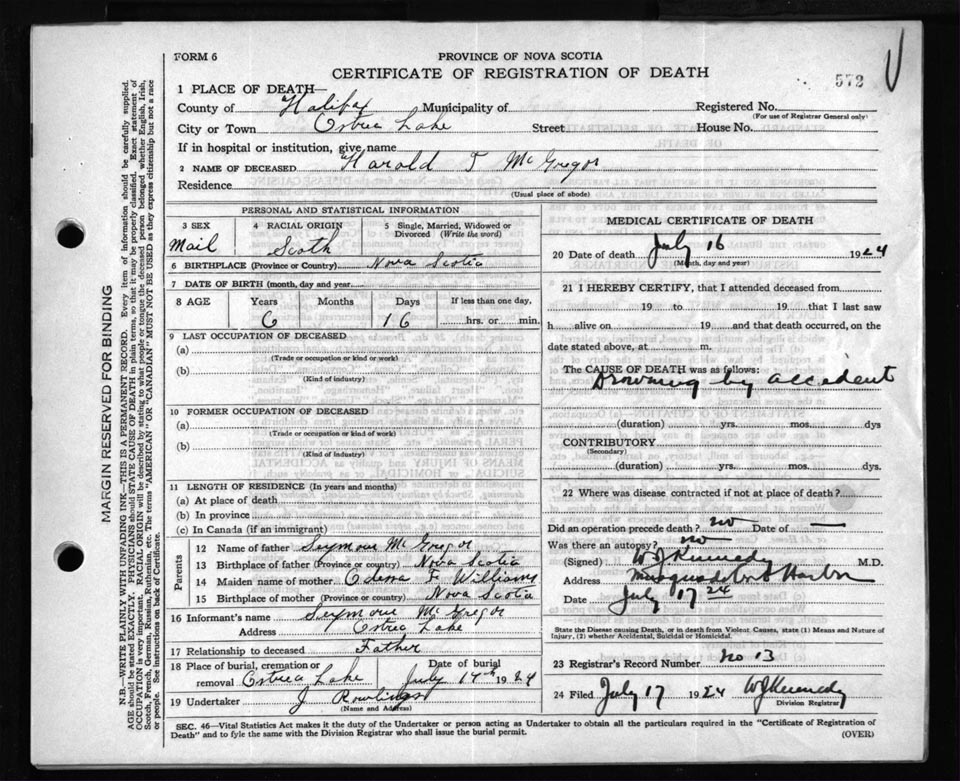 FORM 6
PROVINCE OF NOVA SCOTIA
CERTIFICATE OF REGISTRATION OF DEATH
572
1 PLACE OF DEATH—
County of Halifax Municipality of Registered No.
(For use of Registrar General only)
City or Town Ostrea Lake Street House No.
If in hospital or institution, give name
2 NAME OF DECEASED Harold T McGregor
Residence
(Usual place of abode)
PERSONAL AND STATISTICAL INFORMATION
3 SEX 4 RACIAL ORIGIN 5 Single, Married, Widowed or Divorced (Write the word)
Mail Scoth
6 BIRTHPLACE (Province or Country) Nova Scotia
7 DATE OF BIRTH (month, day and year)
8 AGE Years Months Days If less than one day,
6 16 hrs. or min.
9 LAST OCCUPATION OF DECEASED
(a)
(Trade or occupation or kind or work)
(b)
(Kind of industry)
10 FORMER OCCUPATION OF DECEASED
(a)
(Trade or occupation or kind of work)
(b)
(Kind of industry)
11 LENGTH OF RESIDENCE (In years and months)
(a) At place of death
(b) In province
(c) In Canada (if an immigrant)
Parents
12 Name of father Seymour McGregor
13 Birthplace of father (Province or country) Nova Scotia
14 Maiden name of mother Edena F Williams
15 Birthplace of mother (Province or country) Nova Scotia
16 Informant's name Seymour McGregor
Address Ostrea Lake
17 Relationship to deceased Father
18 Place of burial, cremation or removal Ostrea Lake Date of burial July 17th 1924
19 Undertaker J Rowlings
(Name and Address)
MEDICAL CERTIFICATE OF DEATH
20 Date of death July 16 1924
(Month, day and year)
21 I HEREBY CERTIFY, that I attended deceased from
19 to 19 that I last saw
h alive on 19 and that death occurred, on the
date stated above, at m.
The CAUSE OF DEATH was as follows:
Drowning by accident
(duration) yrs. mos. dys
CONTRIBUTORY
(Secondary)
(duration) yrs. mos. dys.
22 Where was disease contracted if not at place of death?
Did an operation precede death? no Date of —
Was there an autopsy? no
(Signed) W J Kennedy M.D.
Address Musquodoboit Harbor
Date July 17 24
State the Disease causing Death, or in death from Violent Causes, state (1) Means and Nature of
Injury, (2) whether Accidental, Suicidal or Homicidal.
23 Registrar's Record Number no 13
24 Filed July 17 1924 W J Kennedy
Division Registrar
SEC. 46—Vital Statistics Act makes it the duty of the Undertaker or person acting as Undertaker to obtain all the particulars required in the "Certificate of Registration of
Death" and to fyle the same with the Division Registrar who shall issue the burial permit.
(OVER)
MARGIN RESERVED FOR BINDING
N.B.—WRITE PLAINLY WITH UNFADING INK—THIS IS A PERMANENT RECORD. Every item of information should be carefully supplied.
AGE should be stated EXACTLY. PHYSICIANS should STATE CAUSE OF DEATH in plain terms, so that it may be properly classified. Exact statement of
OCCUPATION is very important. RACIAL ORIGIN will be described by stating to what people or tongue the deceased person belonged whether English, Irish,
Scotch, French, German, Russian, Ruthenian, etc. The terms "AMERICAN" OR "CANADIAN" MUST NOT BE USED as they express citizenship but not a race
or people. See instructions on back of Certificate.